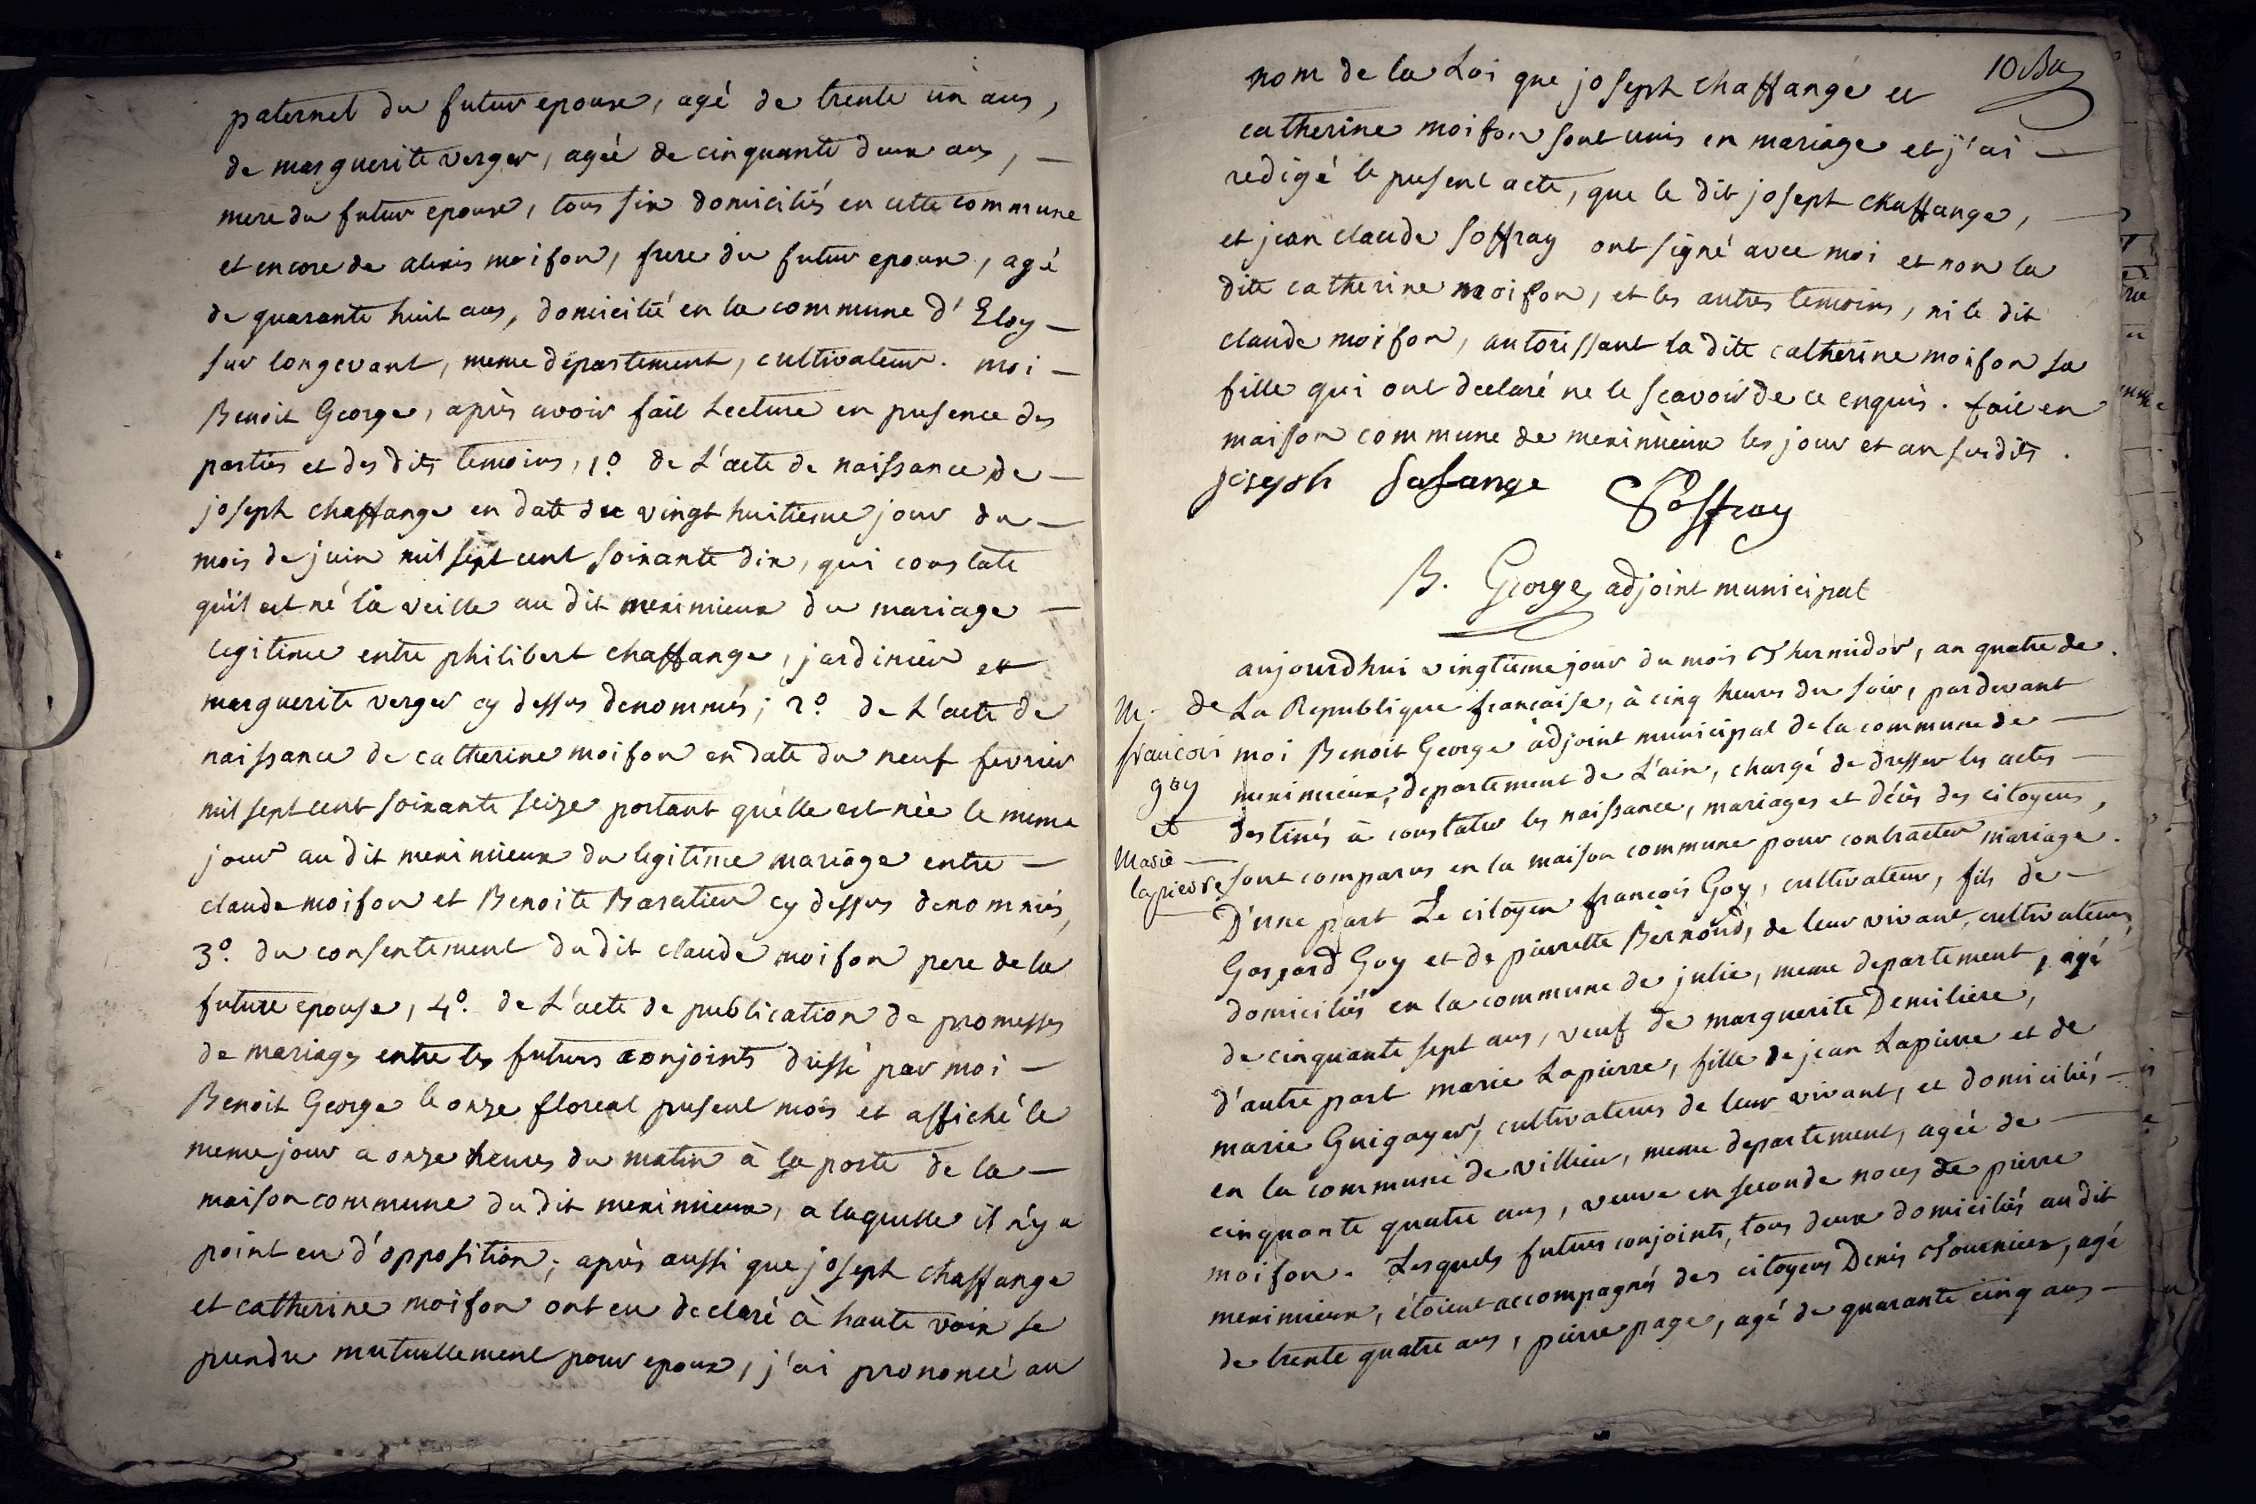 paternel du futur epoux, agé de trente un ans,
de marguerite verger, agée de cinquante deux ans, —
mere du futur epoux, tous six domiciliés en cette commune
et encore de alexis moifon, frere du futur epoux, agé
de quarante huit ans, domicilié en la commune d'Eloy —
sur longevant, meme département, cultivateur. moi —
Benoit George, après avoir fait Lecture en presence des
parties et des dits temoins, 1º de L'acte de naissance de —
joseph chaffange en date du vingt huitieme jour du —
mois de juin mil sept cent soixante dix, qui constate
qu'il est né la veille au dit meximieux du mariage —
legitime entre philibert chaffange, jardinier et
marguerite verger cy dessus denommés; 2º de L'acte de
naissance de catherine moifon en date du neuf fevrier
mil sept cent soixante seize portant qu'elle est née le meme
jour au dit meximieux du legitime mariage entre —
claude moifon et Benoite Baratier cy dessus denommés,
3º. du consentement du dit claude moifon pere de la
future epouse, 4º. de L'acte de publication de promesses
de mariages entre les futurs conjoints dressé par moi —
Benoit George le onze floreal present mois et affiché le
meme jour a onze heures du matin à la porte de la —
maison commune du dit meximieux, a laquelle il n'y a
point eu d'opposition; après aussi que joseph chaffange
et catherine moifon ont eu declaré à haute voix se
prendre mutuellement pour epoux, j'ai prononcé au
nom de la Loi que joseph chaffange et
catherine moifon sont unis en mariage et j'ai —
redigé le present acte, que le dit joseph chaffange, —
et jean claude Soffray ont signé avec moi et non la
dite catherine moifon, et les autres temoins, ni le dit
claude moifon, autorissant la dite catherine moifon sa
fille qui ont declaré ne le scavoir de ce enquis. fait en
maison commune de meximieux les jour et an susdits.
joseph Safange
Soffray
B. George adjoint municipal
aujourdhui vingtieme jour du mois Thermidor, an quatre de
de La Republique francaise, à cinq heures du soir, pardevant
moi Benoit George adjoint municipal de la commune de —
meximieux, departement de L'ain, chargé de dresser les actes —
destinés à constater les naissance, mariages et décès des citoyens,
sont comparus en la maison commune pour contracter mariage.
M.
francois
goy
et
Marie —
lapierre
D'une part Le citoyen francois Goy, cultivateur, fils de —
Gaspard Goy et de pierrette Bernoud, de leur vivant, cultivateurs,
domiciliés en la commune de julie, meme departement, agé
de cinquante sept ans, veuf de marguerite Demiliere,
d'autre part marie Lapierre, fille de jean Lapierre et de
marie Guigoyer, cultivateurs de leur vivant, et domiciliés —
en la commune de villieu, meme departement, agée de —
cinquante quatre ans, veuve en seconde noces de pierre
moifon. Lesquels futurs conjoints, tous deux domiciliés au dit
meximieux, étoient accompagnés des citoyens Denis Tournier, agé
de trente quatre ans, pierre page, agé de quarante cinq ans —